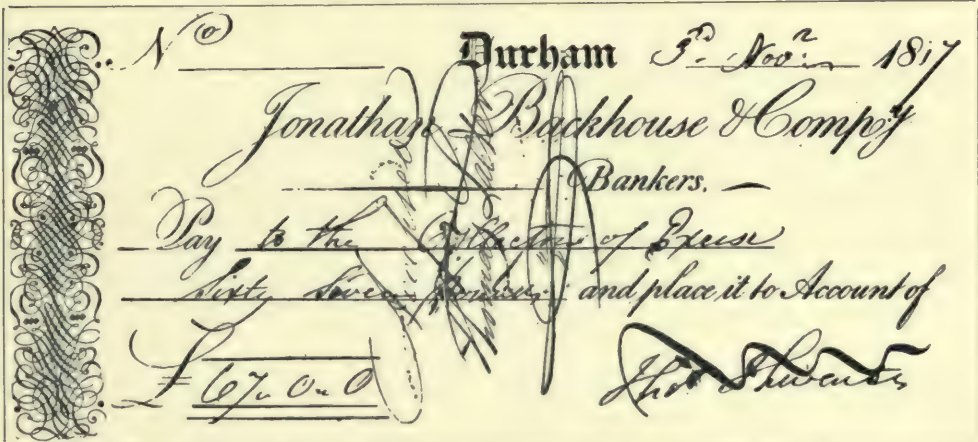 No Durham 3d. Novr. 1817
Jonathan Backhouse & Compy
Bankers.
Pay to the Collector of Excise
Sixty Seven Pounds and place it to Account of
£ 67. 0. 0